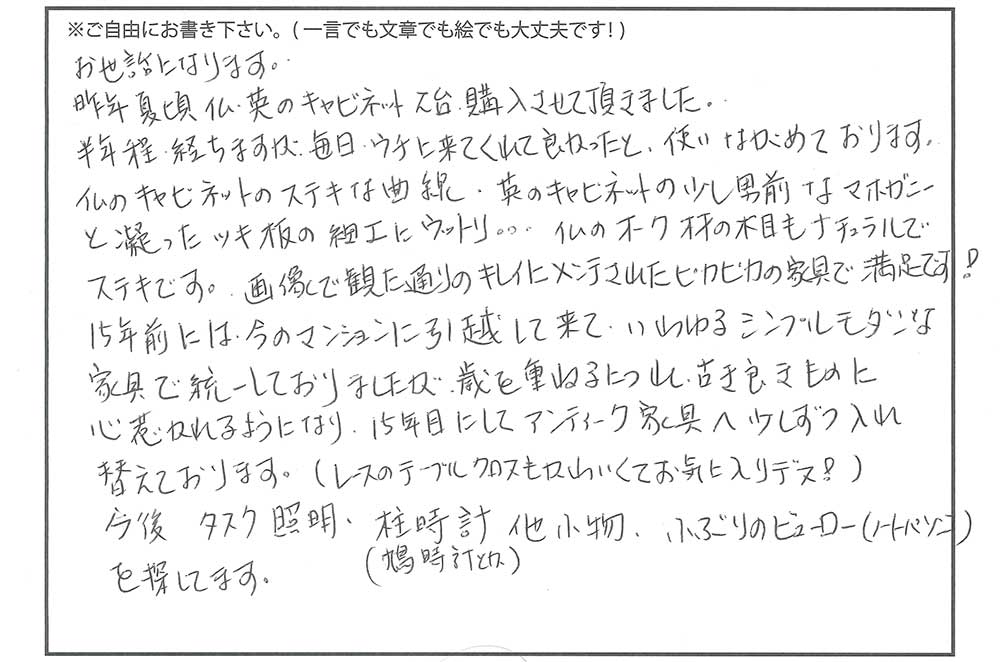 ※ご自由にお書き下さい。(一言でも文章でも絵でも大丈夫です!)
お世話になります。
昨年夏頃仏・英のキャビネット2台購入させて頂きました。
半年程経ちますが、毎日ウチに来てくれて良かったと、使いながめております。
仏のキャビネットのステキな曲線・英のキャビネットの少し男前なマホガニー
と凝ったツキ板の細工にウットリ… 仏のオーク材の木目もナチュラルで
ステキです。画像で観た通りのキレイにメンテされたピカピカの家具で満足です!
15年前には、今のマンションに引越して来て、いわゆるシンプルモダンな
家具で統一しておりましたが、歳を重ねるにつれ、古き良きものに
心惹かれるようになり、15年目にしてアンティーク家具へ少しずつ入れ
替えております。(レースのテーブルクロスもかわいくてお気に入りデス!)
今後 タスク照明、柱時計 他小物、小ぶりのビューロー(ノートパソコン)
(鳩時計とか)
を探してます。